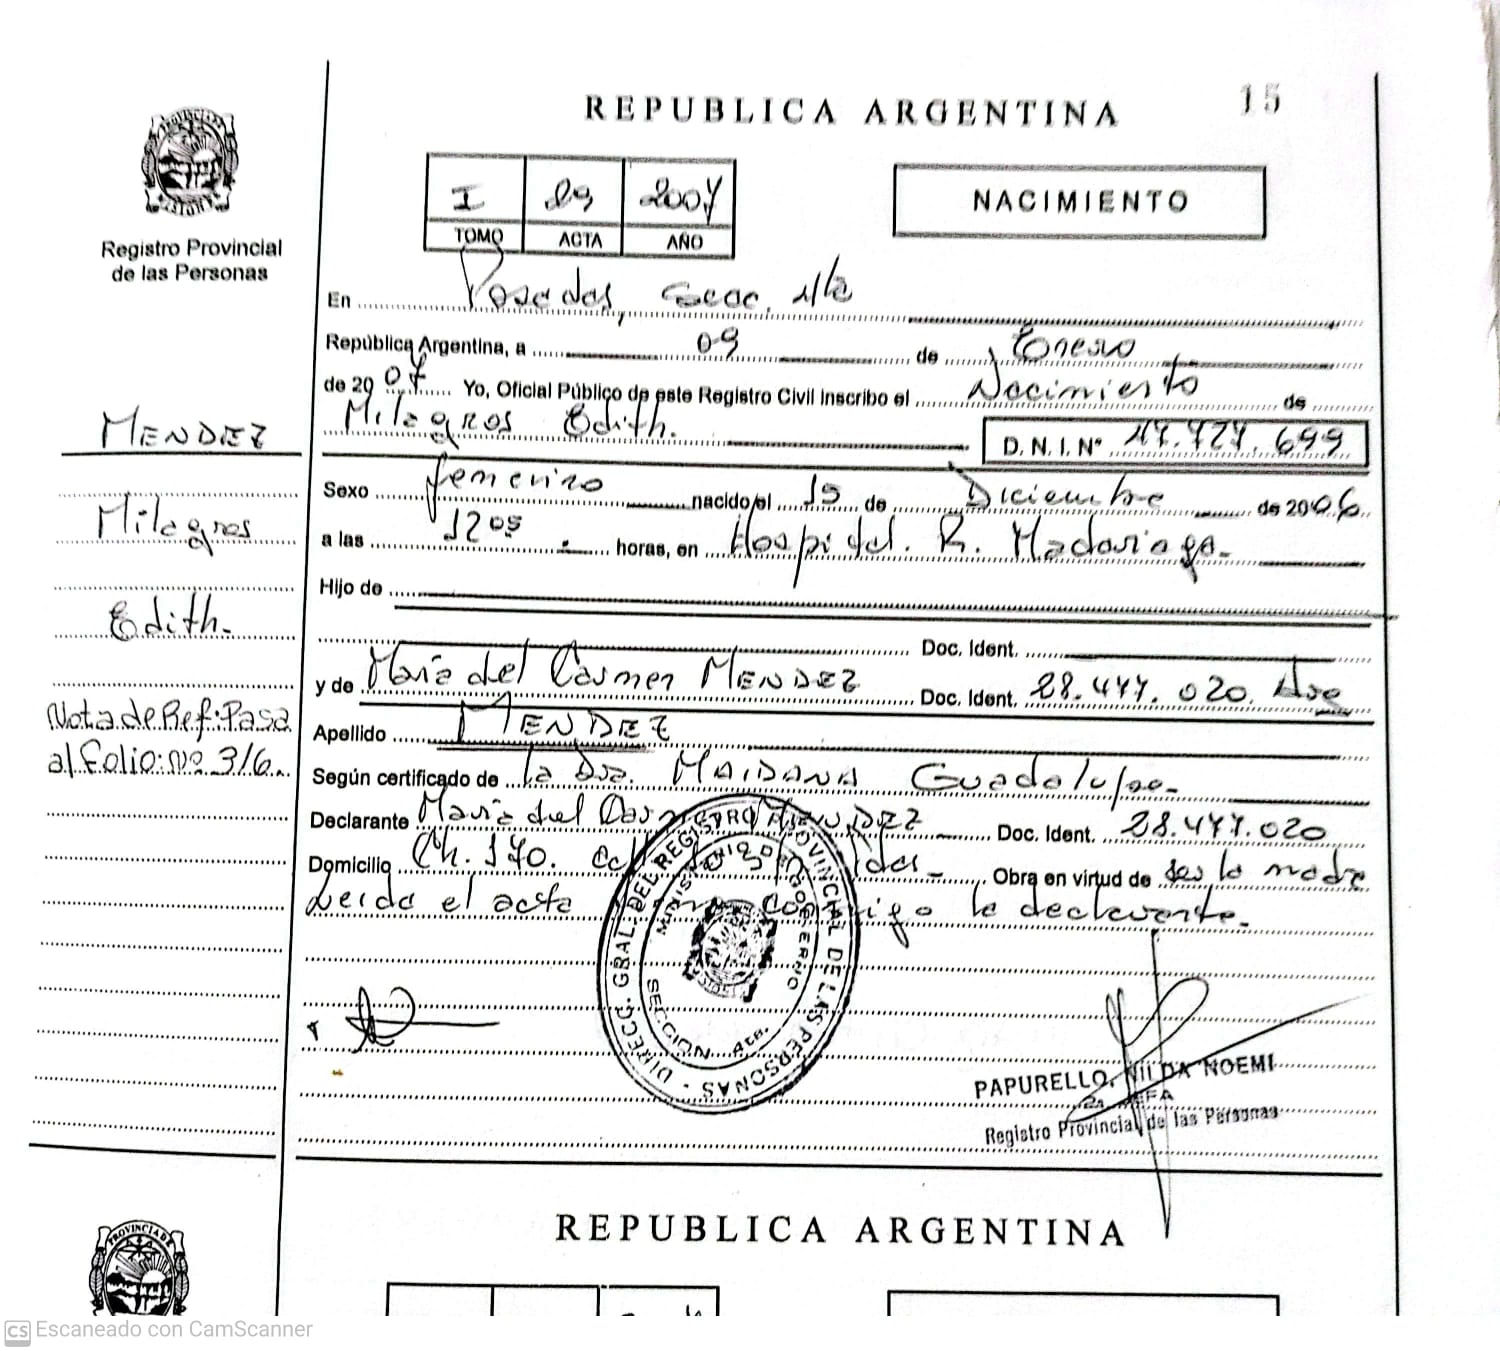 REPUBLICA ARGENTINA
15
I 29 2007
TOMO ACTA AÑO
NACIMIENTO
Registro Provincial
de las Personas
En Posadas, Secc. 4ta
República Argentina, a 09 de Enero
de 2007 Yo, Oficial Público de este Registro Civil inscribo el Nacimiento de
Milagros Edith.
D. N. I. Nº 47.727.699
Sexo femenino nacido el 15 de Diciembre de 2006
a las 12 05 horas, en Hospital. R. Madariaga
Hijo de
Doc. Ident.
y de María del Carmen MENDEZ Doc. Ident. 28.477.020
Apellido MENDEZ
Según certificado de la Dra. MAIDANA Guadalupe
Declarante María del Carmen MENDEZ Doc. Ident. 28.477.020
Domicilio Ch. 170. Obra en virtud de ser la madre
Leída el acta conmigo la declarante.
MENDEZ
Milagros
Edith.
Nota de Ref: Pasa
al folio: nº 316.
DIRECC. GRAL. DEL REGISTRO PROVINCIAL DE LAS PERSONAS
MINISTERIO DE GOBIERNO
SECCION 4ta.
PAPURELLO, NOEMI
Registro Provincial de las Personas
PROVINCIA DE
REPUBLICA ARGENTINA
CS Escaneado con CamScanner